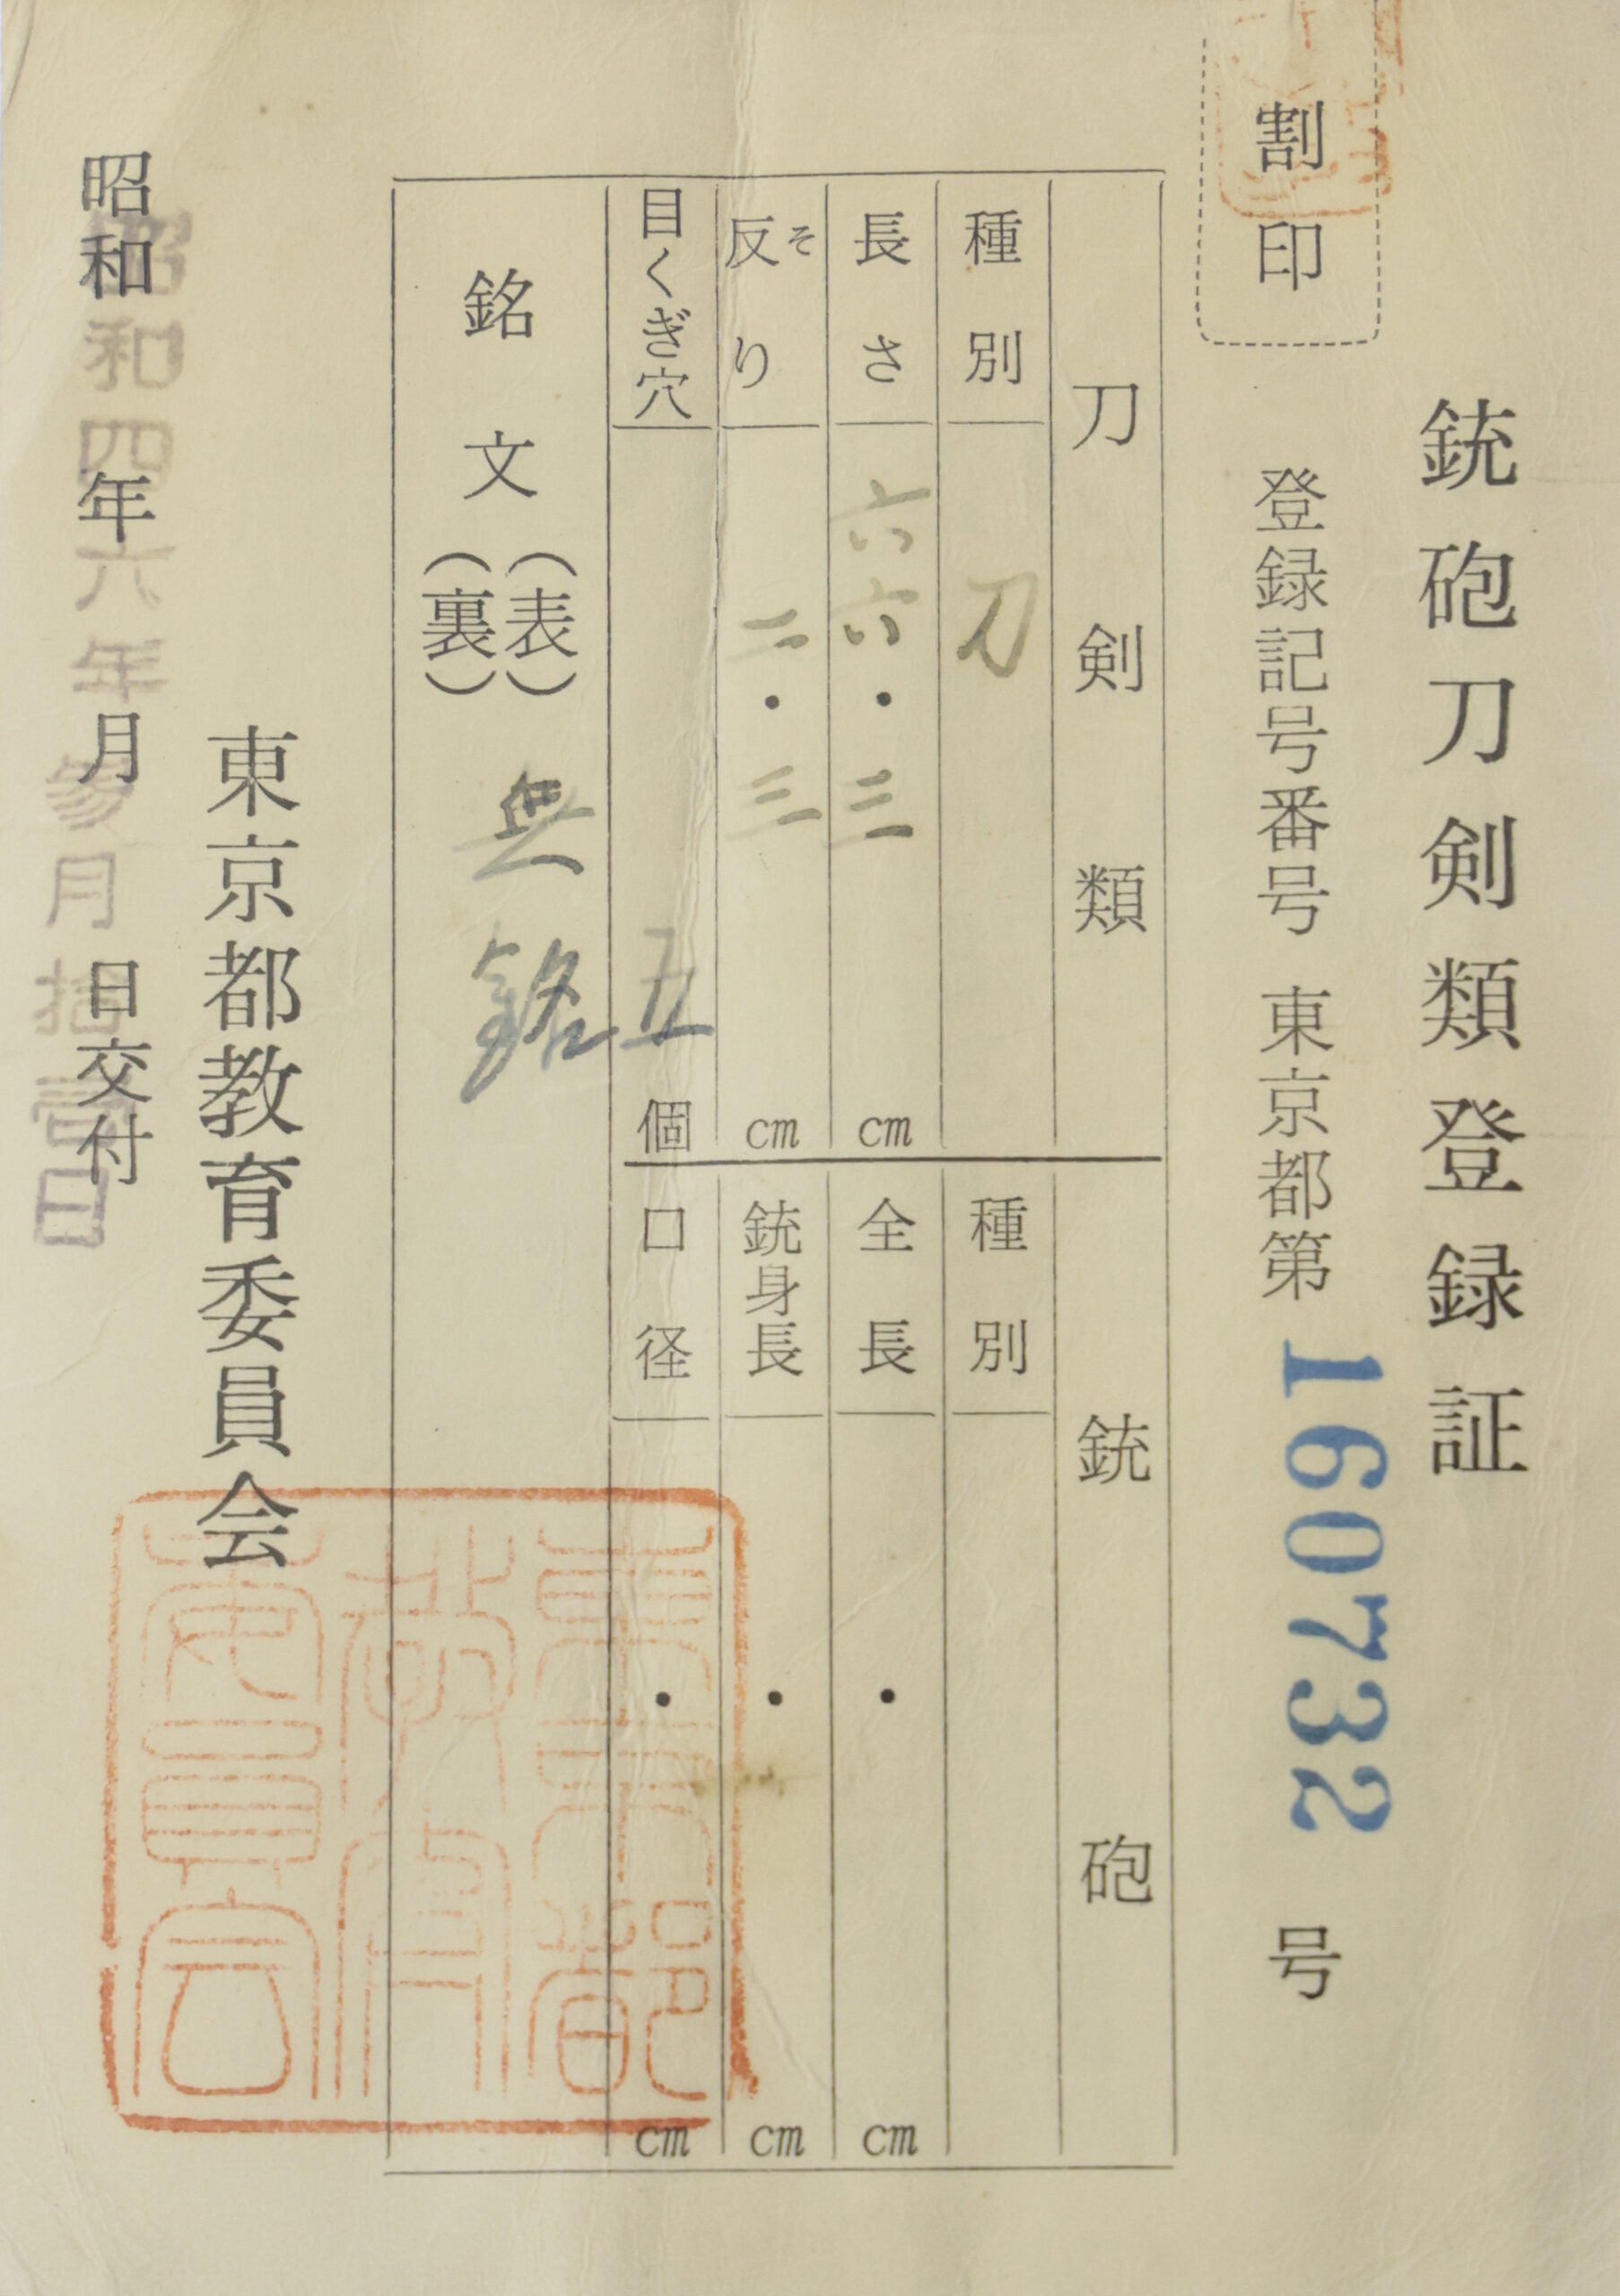 銃砲刀剣類登録証
割印
登録記号番号 東京都第160732号
刀剣類
種別 刀
長さ 六六・三 cm
反り そ 二・三 cm
目くぎ穴 五 個
銃砲
種別
全長 ・ cm
銃身長 ・ cm
口径 ・ cm
銘文 (表) (裏) 無銘
東京都教育委員会
昭和 年 月 日交付
昭和四六年参月拾壱日
東京都教育委員会